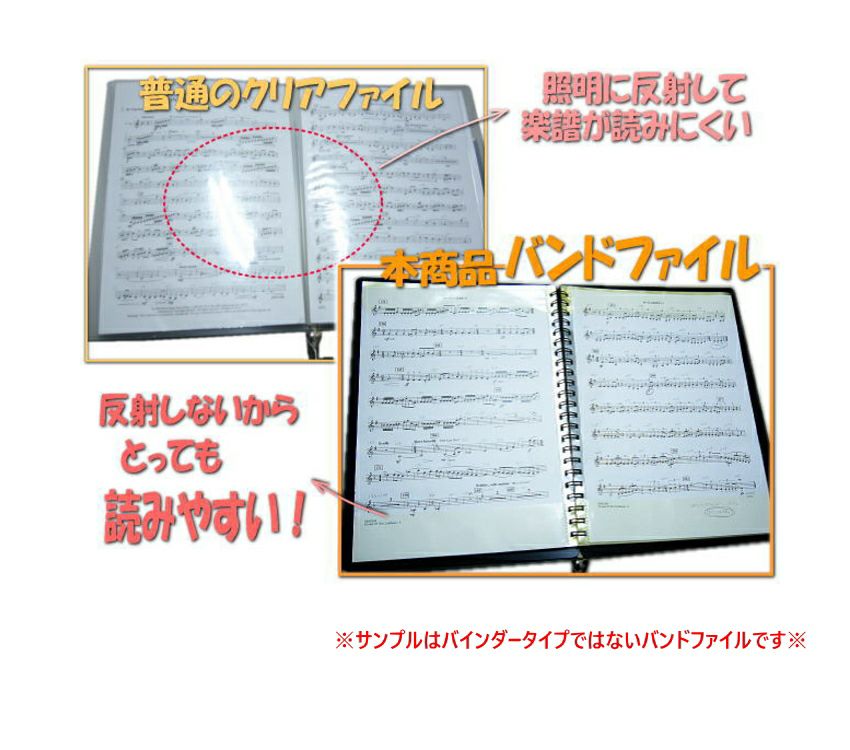 普通のクリアファイル
照明に反射して
楽譜が読みにくい
本商品 バンドファイル
反射しないから
とっても
読みやすい！
※サンプルはバインダータイプではないバンドファイルです※